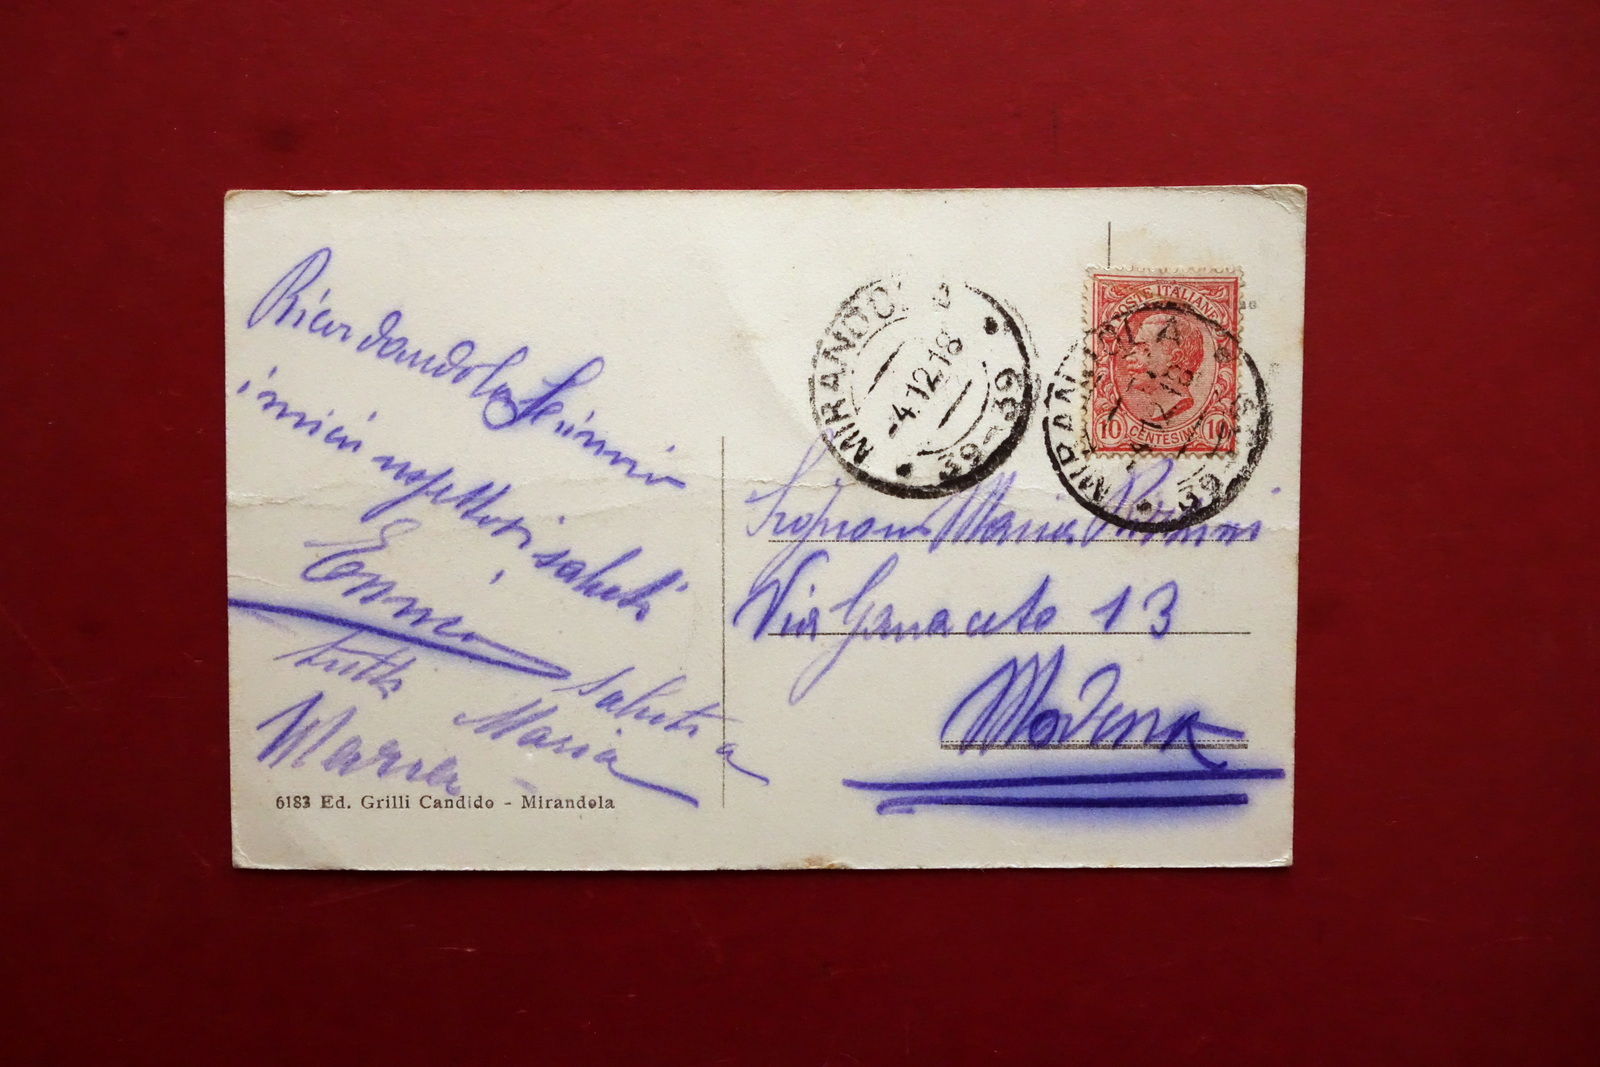 Ricordandola
i miei rispettosi saluti
Ennio
saluti a
tutti Maria
Maria
6183 Ed. Grilli Candido - Mirandola
MIRANDOLA
-4.12.18
39-39
POSTE ITALIANE
10 CENTESIMI 10
MIRANDOLA
Maria
Via Ganaceto 13
Modena